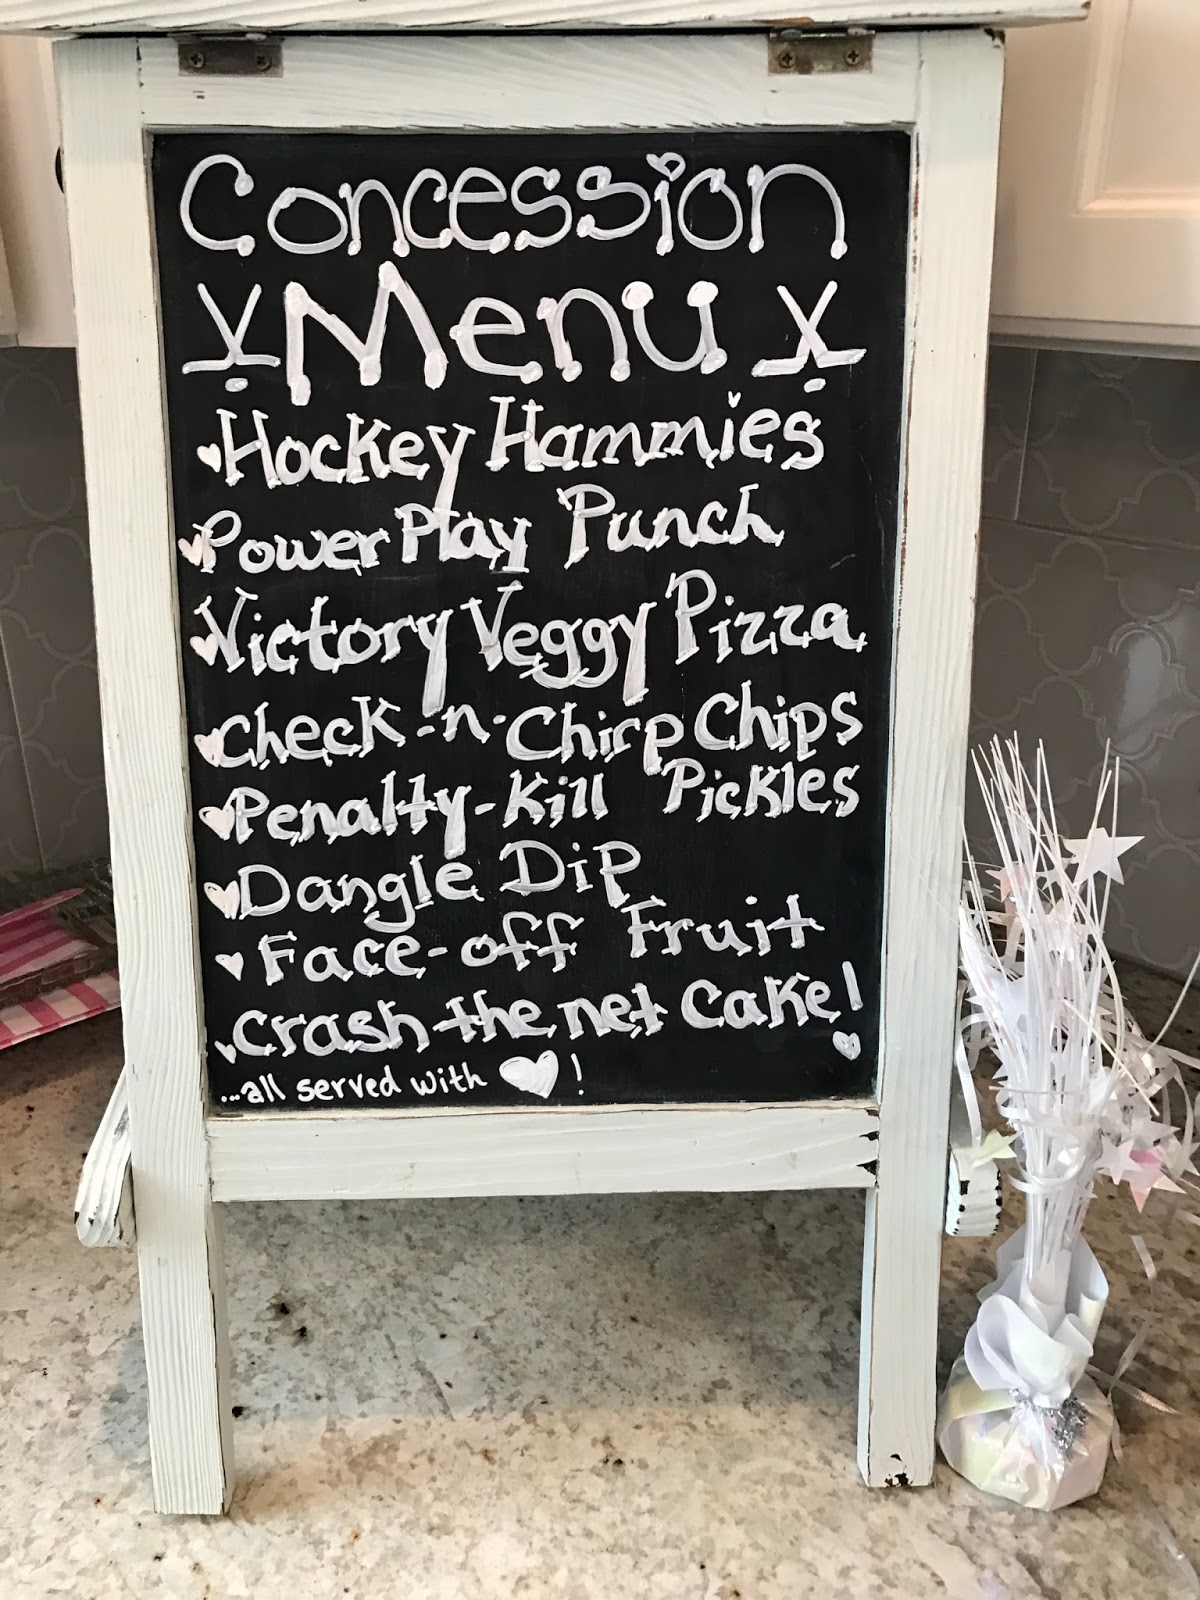 Concession
Menu
Hockey Hammies
Power Play Punch
Victory Veggy Pizza
Check-n-Chirp Chips
Penalty-Kill Pickles
Dangle Dip
Face-off Fruit
Crash the net Cake!
...all served with ♥!